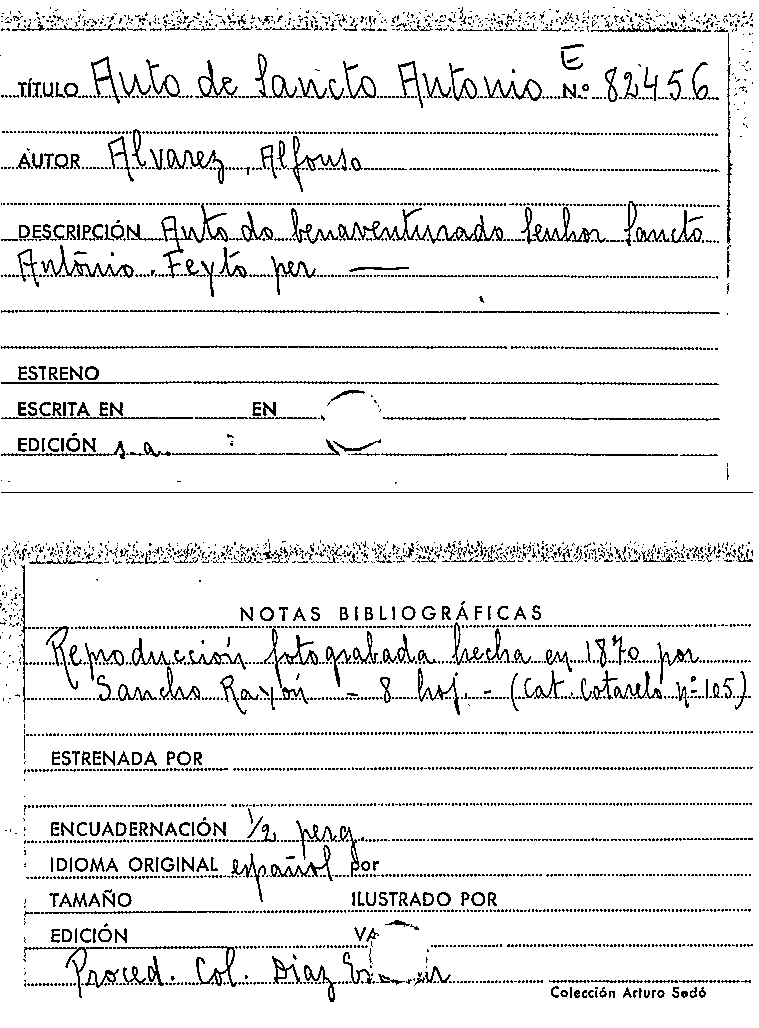 TÍTULO Auto de Sancto Antonio E Nº 82456
AUTOR Alvarez, Alfonso
DESCRIPCIÓN Auto do benaventurado Senhor Sancto
António. Feyto per —
ESTRENO
ESCRITA EN EN
EDICIÓN s.a.
NOTAS BIBLIOGRÁFICAS
Reproducción fotograbada hecha en 1870 por
Sancho Rayón - 8 hoj. - (Cat. Cotarelo nº 105)
ESTRENADA POR
ENCUADERNACIÓN 1/2 perg.
IDIOMA ORIGINAL español por
TAMAÑO ILUSTRADO POR
EDICIÓN
Proced. Col. Díaz
Colección Arturo Sedó